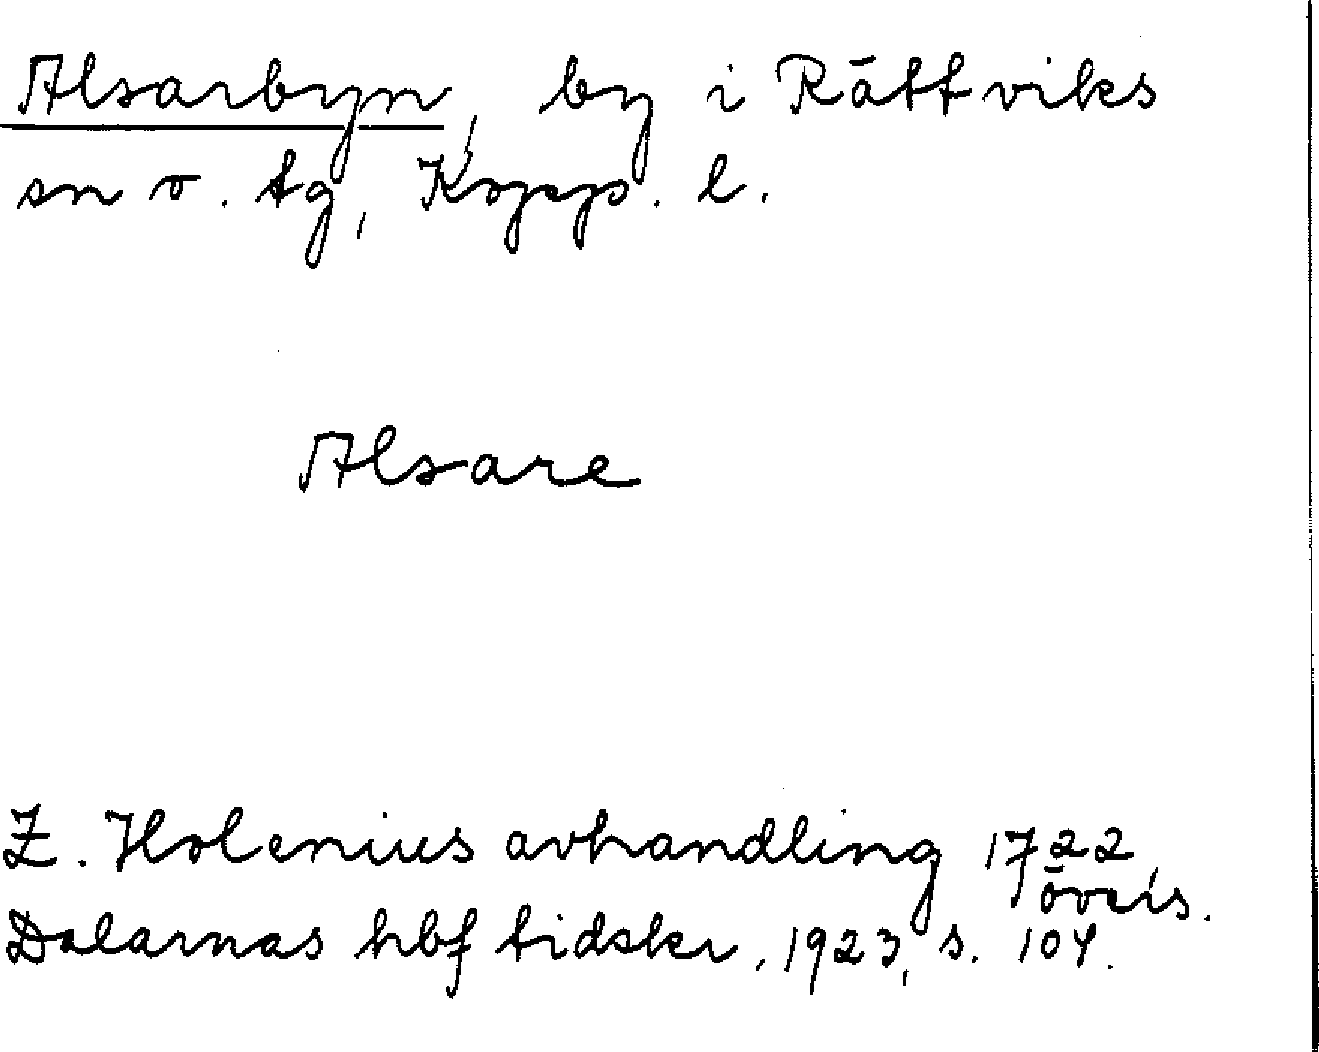 Alsarbyn, by i Rättviks
sn o. tg, Kopp. l.
Alsare
Z. Holenius avhandling 1722,
övers.
Dalarnas hbf tidskr. 1923, s. 104.